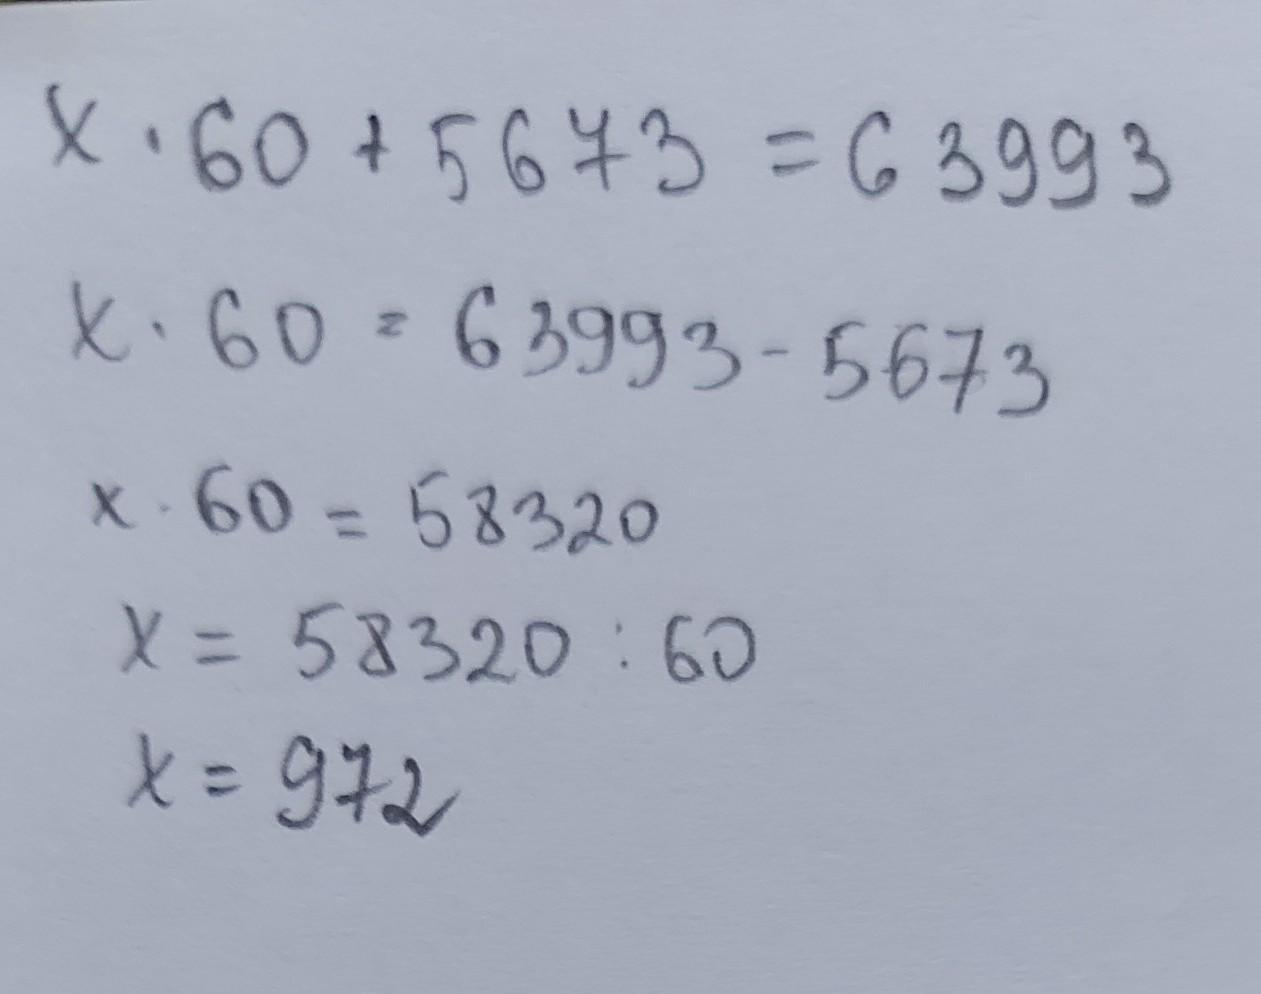 x · 60 + 5673 = 63993
x · 60 = 63993 - 5673
x · 60 = 58320
x = 58320 : 60
x = 972